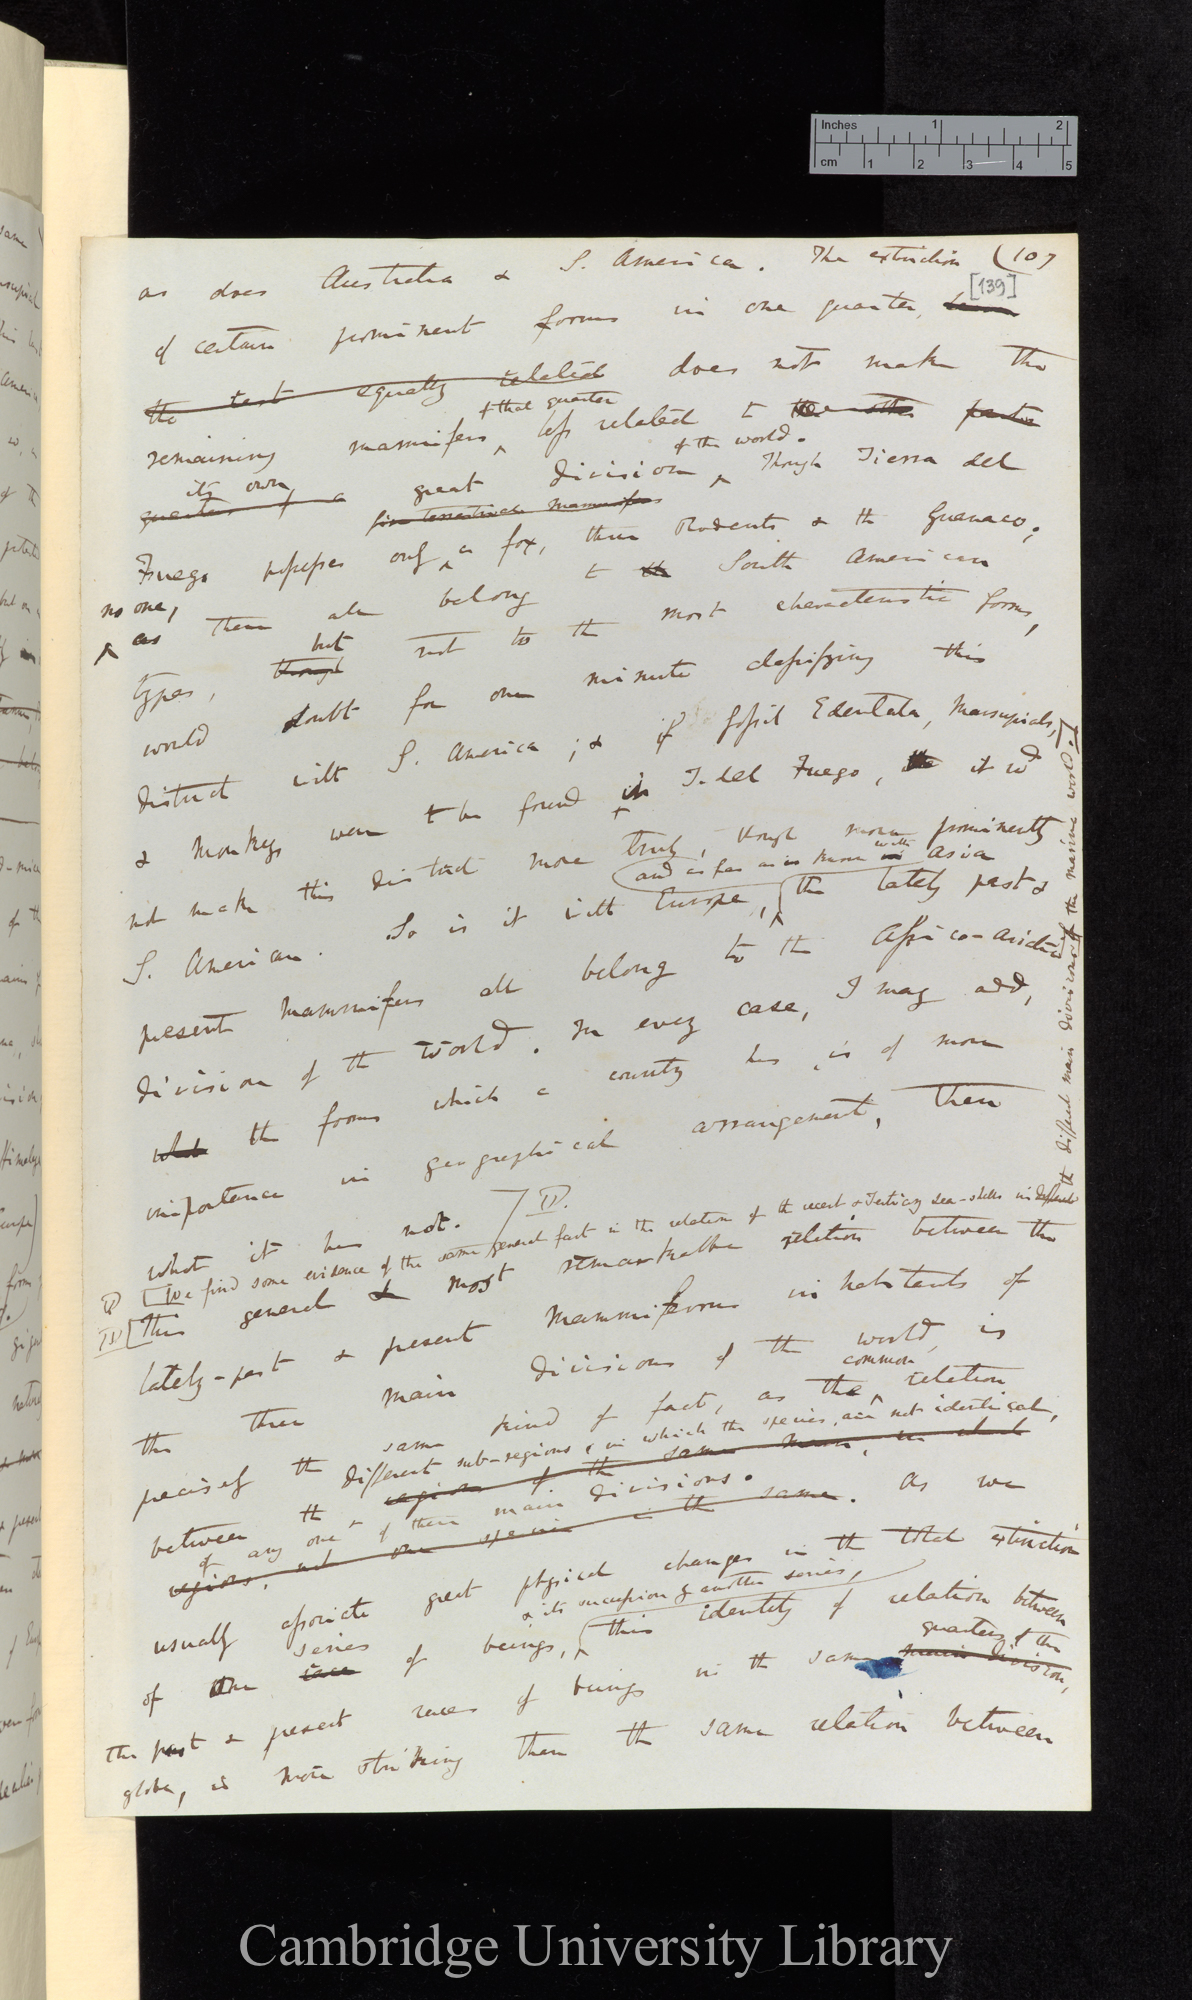 Inches 1 2
cm 1 2 3 4 5
as does Australia & S. America. The extinction (107
[139]
of certain prominent forms in one quarter,
the rest equally related does not make the
of that quarter
remaining mammifers, less related to the other parts
of the world.
its own
quarter of a great division, Though Tierra del
five terrestrial mammifers
Fuego possesses only a fox, three Rodents & the Guanaco;
no one,
as these all belong to the South American
types, though but not to the most characteristic forms,
would doubt for one minute classifying this
district with S. America; & if fossil Edentata, Marsupials,
& Monkeys were to be found in T. del Fuego, it wd
not make this district more truly, though more prominently
and as far as is known with Asia
S. American. So is it with Europe, the lately past &
present mammifers all belong to the Africo-asiatic
division of the World. In every case, I may add,
what the forms which a country has, is of more
importance in geographical arrangement, than
what it has not.
[We find some evidence of the same general fact in the relation of the recent & Tertiary sea-shells in different
the different main divisions of the marine world.]
[This general & most remarkable relation between the
lately-past & present mammiferous inhabitants of
the three main divisions of the world, is
common
precisely the same kind of fact, as the relation
different sub-regions, in which the species, are not identical,
between the regions of the same main, in which
of any one of these main divisions.
regions, not one species is the same. As we
usually associate great physical changes in the total extinction
series & its succession by another series,
of one race of beings, this identity of relation between
quarters of the
the past & present races of beings in the same main division,
globe, is more striking than the same relation between
Cambridge University Library